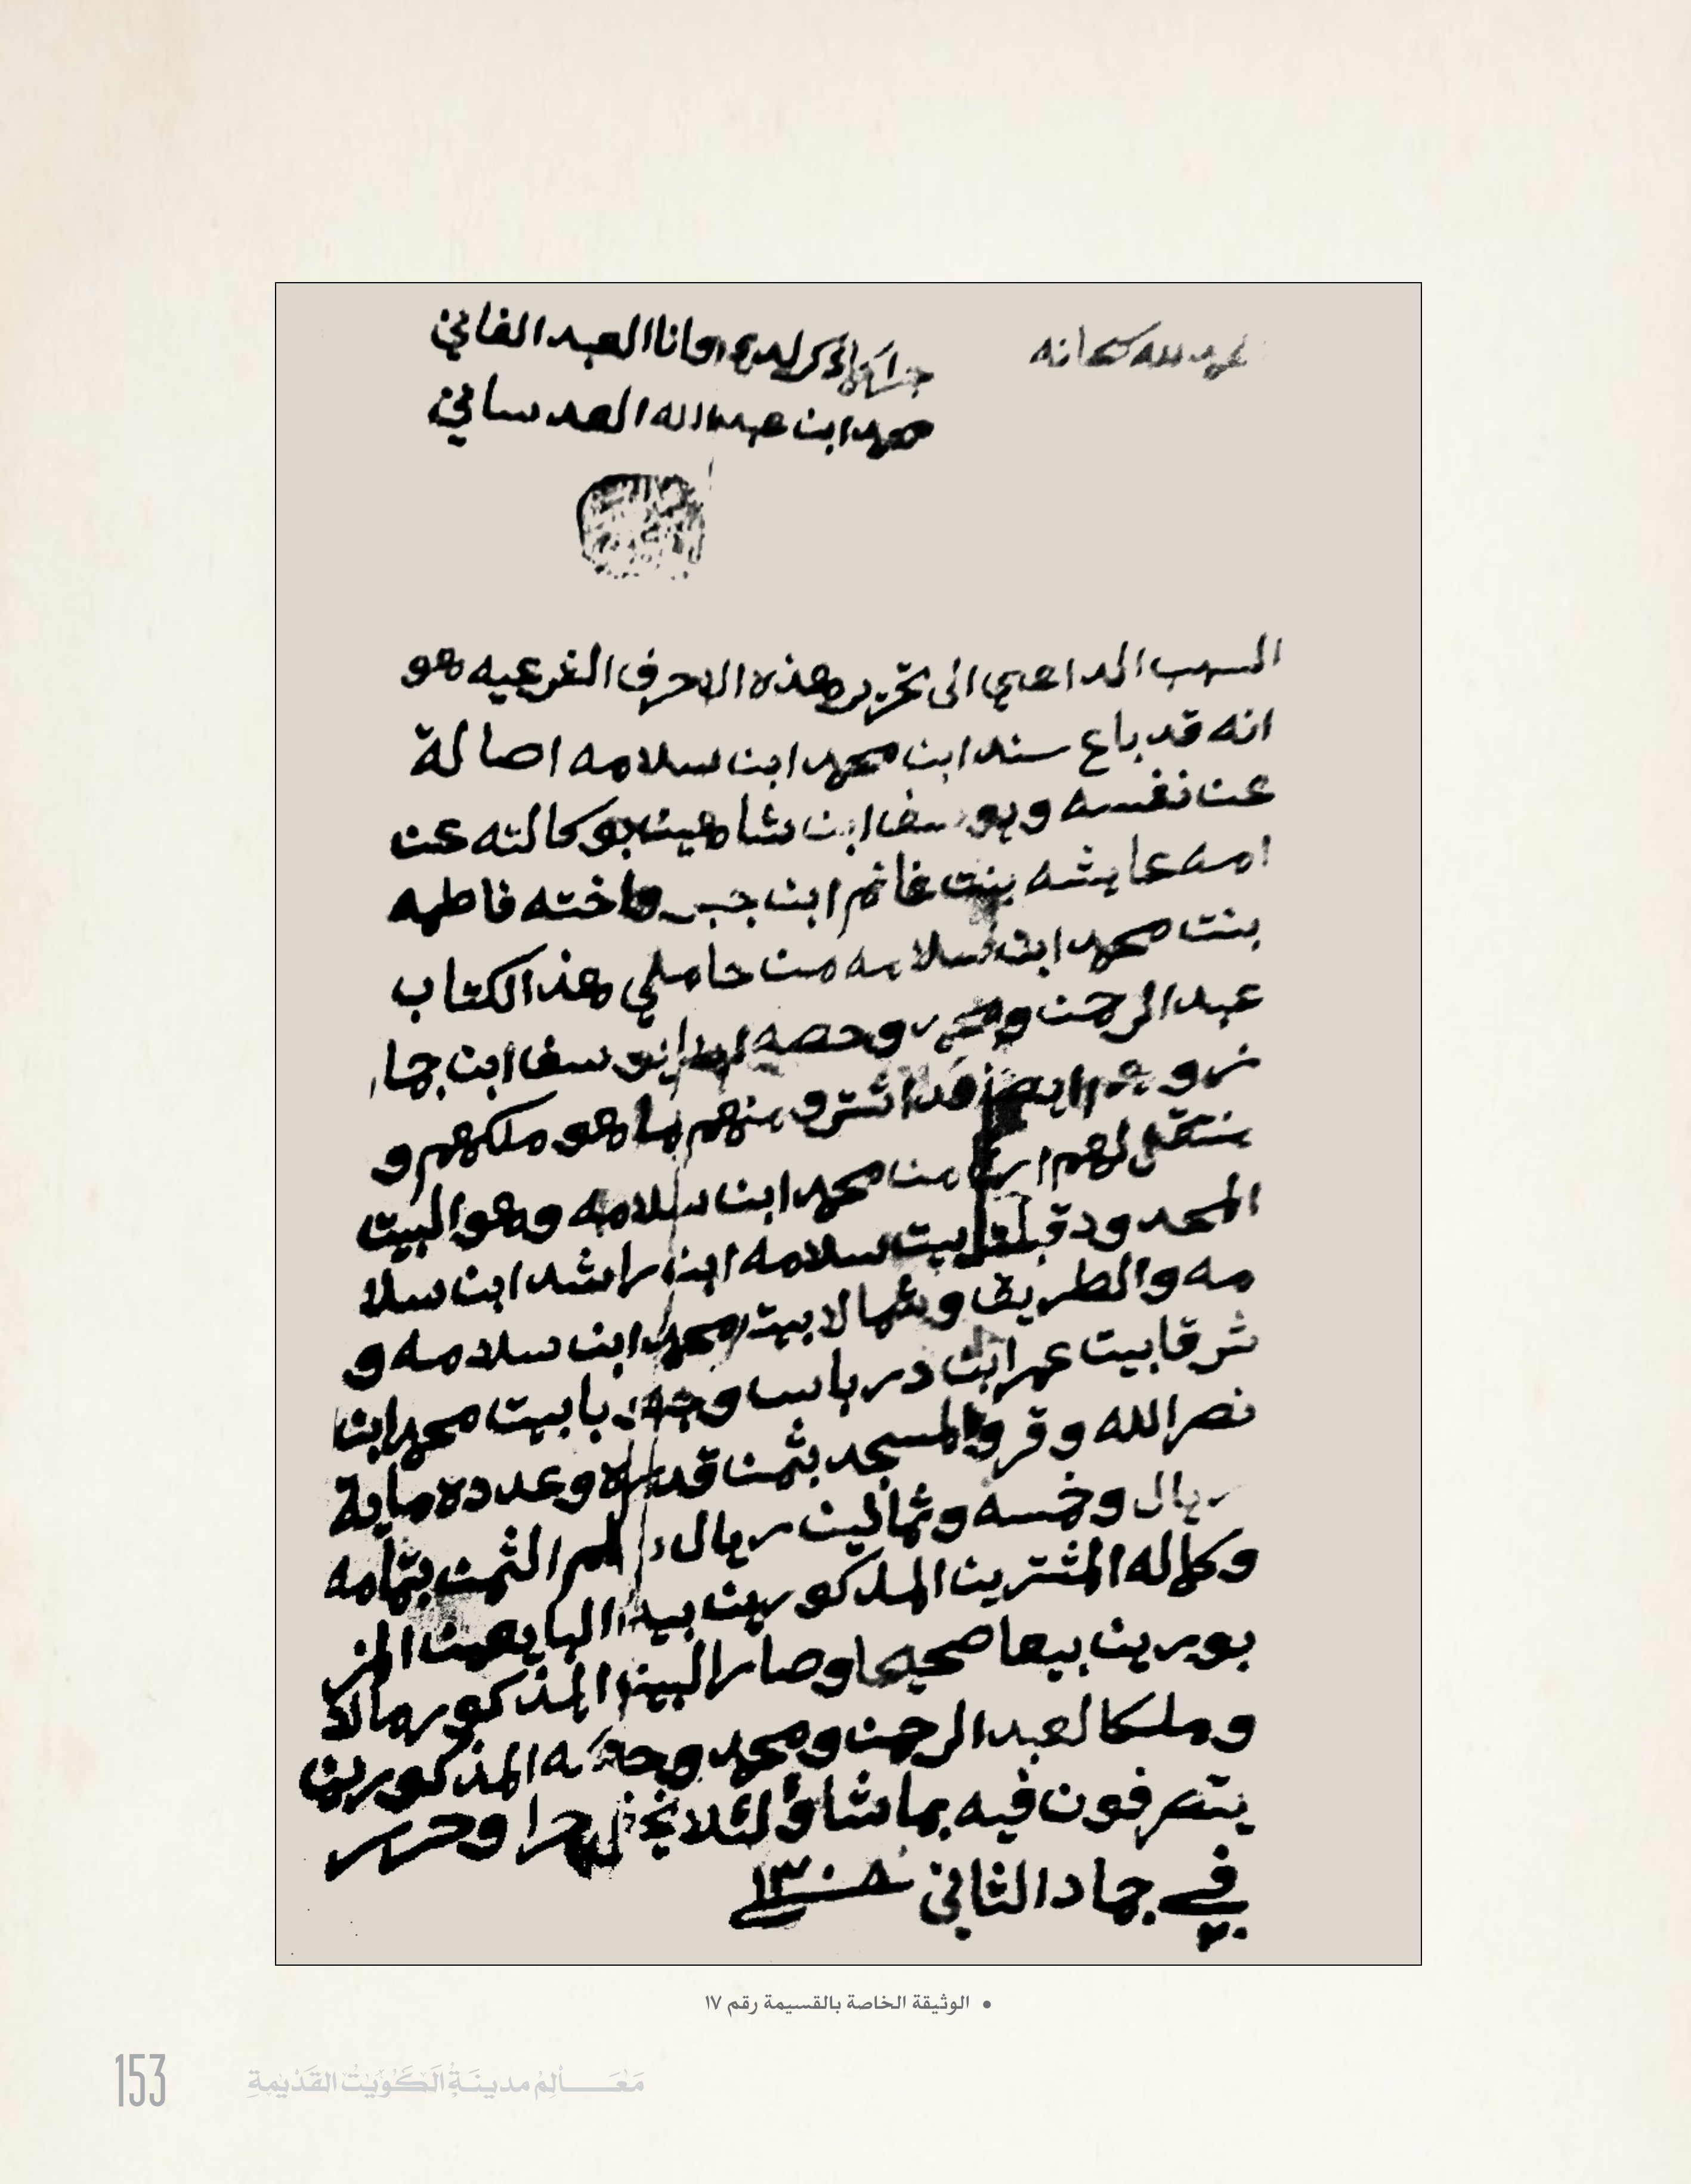 الحمد لله سبحانه
جرا ما ذكر لدي وانا العبد الفاني
محمد ابن عبدالله العدساني
السبب الداعي الى تحرير هذه الاحرف الشرعيه هو
انه قد باع سند ابن محمد ابن سلامه اصالة
عن نفسه ويوسف ابن شاهين بوكالته عن
امه عايشه بنت غانم ابن جبر واخته فاطمه
بنت محمد ابن سلامه من حاملي هذ الكتاب
عبد الرحمن ومحمد وحصه يوسف ابن جما
قد اشترو منهم ما هو ملكهم و
منتقل لهم ارثا من محمد ابن سلامه وهو البيت
المحدود قبلتا بيت سلامه ابن راشد ابن سلا
مه والطريق وشمالا بيت محمد ابن سلامه و
شرقا بيت عمر ابن درباس وجنوبا بيت محمد ابن
نصر الله وقرو المسجد بثمن قدره وعدده ماية
ريال وخمسه وثمانين ريال الثمن بتمامه
وكماله المشترين المذكورين بيد البايعين المز
بورين بيعا صحيحا وصار البيت المذكور مالا
وملكا لعبد الرحمن ومحمد وحصه المذكورين
يتصرفون فيه بما شاؤ لئلا يخفى جرا وحرر
في ٢٠ جماد الثاني ١٣٠٨
• الوثيقة الخاصة بالقسيمة رقم ١٧
153 مَعَــالِمُ مدينَةِ الكُوَيْتْ القَدْيمَةِ